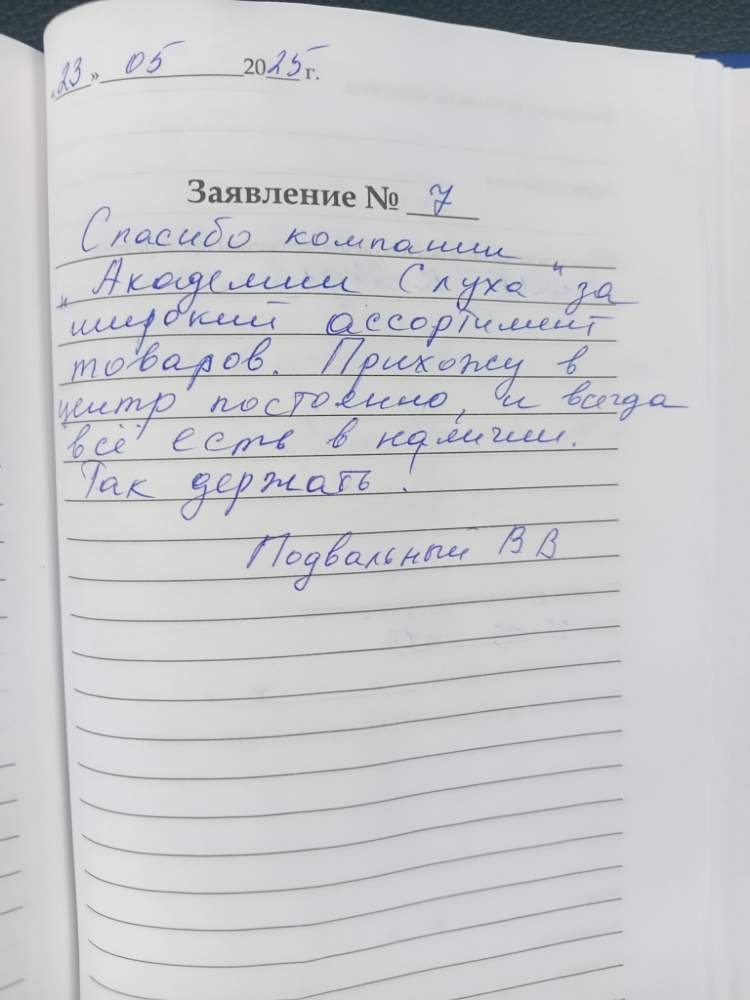 «23» 05 2025 г.
Заявление № 7
Спасибо компании
"Академии Слуха" за
широкий ассортимент
товаров. Прихожу в
центр постоянно, и всегда
всё есть в наличии.
Так держать!
Подвальный В В